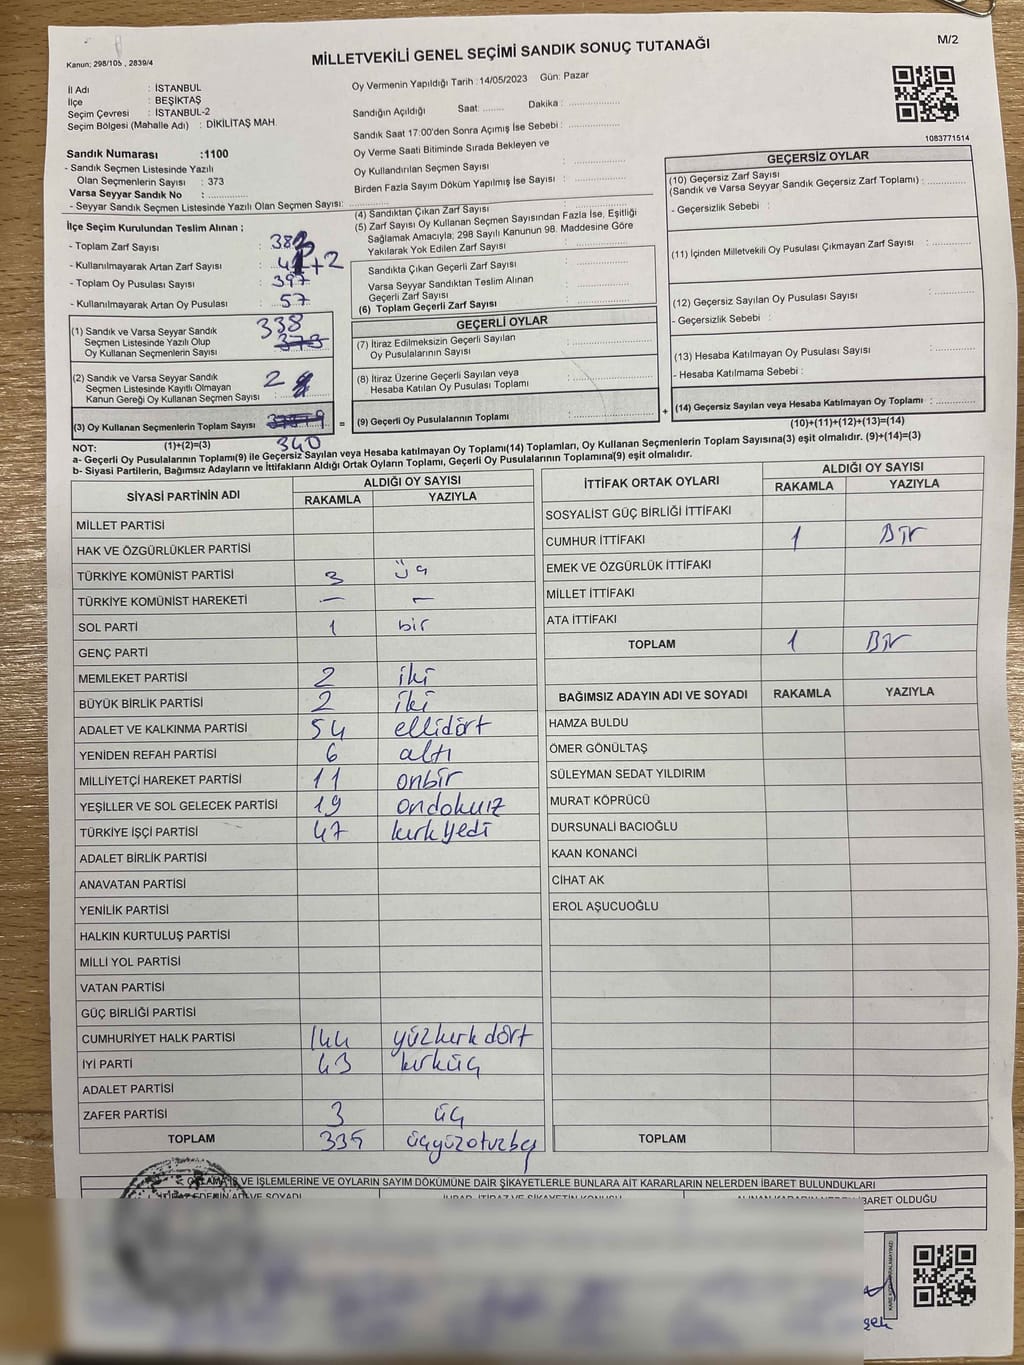 Kanun; 298/105 , 2839/4
MİLLETVEKİLİ GENEL SEÇİMİ SANDIK SONUÇ TUTANAĞI
M/2
İl Adı : İSTANBUL
İlçe : BEŞİKTAŞ
Seçim Çevresi : İSTANBUL-2
Seçim Bölgesi (Mahalle Adı) : DİKİLİTAŞ MAH.
Oy Vermenin Yapıldığı Tarih : 14/05/2023 Gün: Pazar
Sandığın Açıldığı Saat: ........ Dakika : ....................
Sandık Saat 17:00'den Sonra Açımış İse Sebebi : ....................
Oy Verme Saati Bitiminde Sırada Bekleyen ve
Oy Kullandırılan Seçmen Sayısı : ....................
Birden Fazla Sayım Döküm Yapılmış İse Sayısı : ....................
1083771514
Sandık Numarası :1100
- Sandık Seçmen Listesinde Yazılı
Olan Seçmenlerin Sayısı : 373
Varsa Seyyar Sandık No : ....................
- Seyyar Sandık Seçmen Listesinde Yazılı Olan Seçmen Sayısı: ....................
İlçe Seçim Kurulundan Teslim Alınan ;
- Toplam Zarf Sayısı :
- Kullanılmayarak Artan Zarf Sayısı : +2
- Toplam Oy Pusulası Sayısı : 397
- Kullanılmayarak Artan Oy Pusulası : 57
(1) Sandık ve Varsa Seyyar Sandık
Seçmen Listesinde Yazılı Olup
Oy Kullanan Seçmenlerin Sayısı
338
373
(2) Sandık ve Varsa Seyyar Sandık
Seçmen Listesinde Kayıtlı Olmayan
Kanun Gereği Oy Kullanan Seçmen Sayısı
2
(3) Oy Kullanan Seçmenlerin Toplam Sayısı
(1)+(2)=(3)
340
(4) Sandıktan Çıkan Zarf Sayısı
(5) Zarf Sayısı Oy Kullanan Seçmen Sayısından Fazla İse, Eşitliği
Sağlamak Amacıyla; 298 Sayılı Kanunun 98. Maddesine Göre
Yakılarak Yok Edilen Zarf Sayısı
Sandıkta Çıkan Geçerli Zarf Sayısı
Varsa Seyyar Sandıktan Teslim Alınan
Geçerli Zarf Sayısı
(6) Toplam Geçerli Zarf Sayısı
GEÇERLİ OYLAR
(7) İtiraz Edilmeksizin Geçerli Sayılan
Oy Pusulalarının Sayısı
(8) İtiraz Üzerine Geçerli Sayılan veya
Hesaba Katılan Oy Pusulası Toplamı
= (9) Geçerli Oy Pusulalarının Toplamı
GEÇERSİZ OYLAR
(10) Geçersiz Zarf Sayısı
(Sandık ve Varsa Seyyar Sandık Geçersiz Zarf Toplamı) : ............
- Geçersizlik Sebebi :
(11) İçinden Milletvekili Oy Pusulası Çıkmayan Zarf Sayısı : ............
(12) Geçersiz Sayılan Oy Pusulası Sayısı : ............
- Geçersizlik Sebebi :
(13) Hesaba Katılmayan Oy Pusulası Sayısı : ............
- Hesaba Katılmama Sebebi :
+ (14) Geçersiz Sayılan veya Hesaba Katılmayan Oy Toplamı : ............
(10)+(11)+(12)+(13)=(14)
NOT:
a- Geçerli Oy Pusulaları Toplamı(9) ile Geçersiz Sayılan veya Hesaba katılmayan Oy Toplamı(14) Toplamları, Oy Kullanan Seçmenlerin Toplam Sayısına(3) eşit olmalıdır. (9)+(14)=(3)
b- Siyasi Partilerin, Bağımsız Adayların ve İttifakların Aldığı Ortak Oyların Toplamı, Geçerli Oy Pusulalarının Toplamına(9) eşit olmalıdır.
SİYASİ PARTİNİN ADI
ALDIĞI OY SAYISI
RAKAMLA YAZIYLA
MİLLET PARTİSİ
HAK VE ÖZGÜRLÜKLER PARTİSİ
TÜRKİYE KOMÜNİST PARTİSİ 3 üç
TÜRKİYE KOMÜNİST HAREKETİ — —
SOL PARTİ 1 bir
GENÇ PARTİ
MEMLEKET PARTİSİ 2 iki
BÜYÜK BİRLİK PARTİSİ 2 iki
ADALET VE KALKINMA PARTİSİ 54 ellidört
YENİDEN REFAH PARTİSİ 6 altı
MİLLİYETÇİ HAREKET PARTİSİ 11 onbir
YEŞİLLER VE SOL GELECEK PARTİSİ 19 ondokuız
TÜRKİYE İŞÇİ PARTİSİ 47 kırkyedi
ADALET BİRLİK PARTİSİ
ANAVATAN PARTİSİ
YENİLİK PARTİSİ
HALKIN KURTULUŞ PARTİSİ
MİLLİ YOL PARTİSİ
VATAN PARTİSİ
GÜÇ BİRLİĞİ PARTİSİ
CUMHURİYET HALK PARTİSİ 144 yüzkırk dört
İYİ PARTİ 43 kırküç
ADALET PARTİSİ
ZAFER PARTİSİ 3 üç
TOPLAM 335 üçyüzotuzbeş
İTTİFAK ORTAK OYLARI
ALDIĞI OY SAYISI
RAKAMLA YAZIYLA
SOSYALİST GÜÇ BİRLİĞİ İTTİFAKI
CUMHUR İTTİFAKI 1 Bir
EMEK VE ÖZGÜRLÜK İTTİFAKI
MİLLET İTTİFAKI
ATA İTTİFAKI
TOPLAM 1 Bir
BAĞIMSIZ ADAYIN ADI VE SOYADI RAKAMLA YAZIYLA
HAMZA BULDU
ÖMER GÖNÜLTAŞ
SÜLEYMAN SEDAT YILDIRIM
MURAT KÖPRÜCÜ
DURSUNALİ BACIOĞLU
KAAN KONANCİ
CİHAT AK
EROL AŞUCUOĞLU
TOPLAM
VE İŞLEMLERİNE VE OYLARIN SAYIM DÖKÜMÜNE DAİR ŞİKAYETLERLE BUNLARA AİT KARARLARIN NELERDEN İBARET BULUNDUKLARI
İBARET OLDUĞU